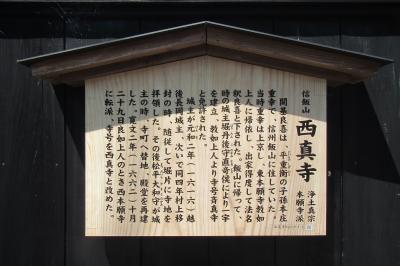 浄土真宗
本願寺派
信飯山 西真寺
開基良喜は、平重衡の子孫本庄
重幸で、信州飯山に住していた。
当時重幸は上京し、東本願寺教如
上人に帰依し、出家得度して法名
釈良喜と下された。飯山に帰って、
時の城主堀丹後守直寄侯により一宇
を建立、教如上人より寺号斉真寺
と免許された。
城主が元和二年（一六一六）越
後長岡城主、次いで同四年村上移
封の時、随従して堀片に寺地を
拝領した。その後松平大和守が城
主の時、寺町へ替地、殿堂を再建
した。寛文二年（一六六二）十月
二十九日良如上人のとき西本願寺
に転派、寺号を西真寺と改めた。